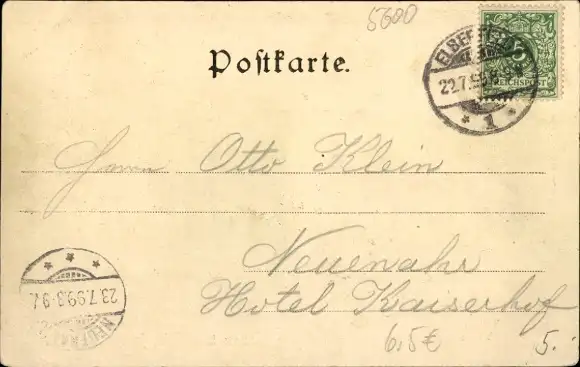 5600
Postkarte.
ELBERFELD
22.7.99
5
REICHSPOST
* 1 *
Herrn Otto Klein
Neuenahr
Hotel Kaiserhof
23.7.99.8-9V.
6,5€
5.-